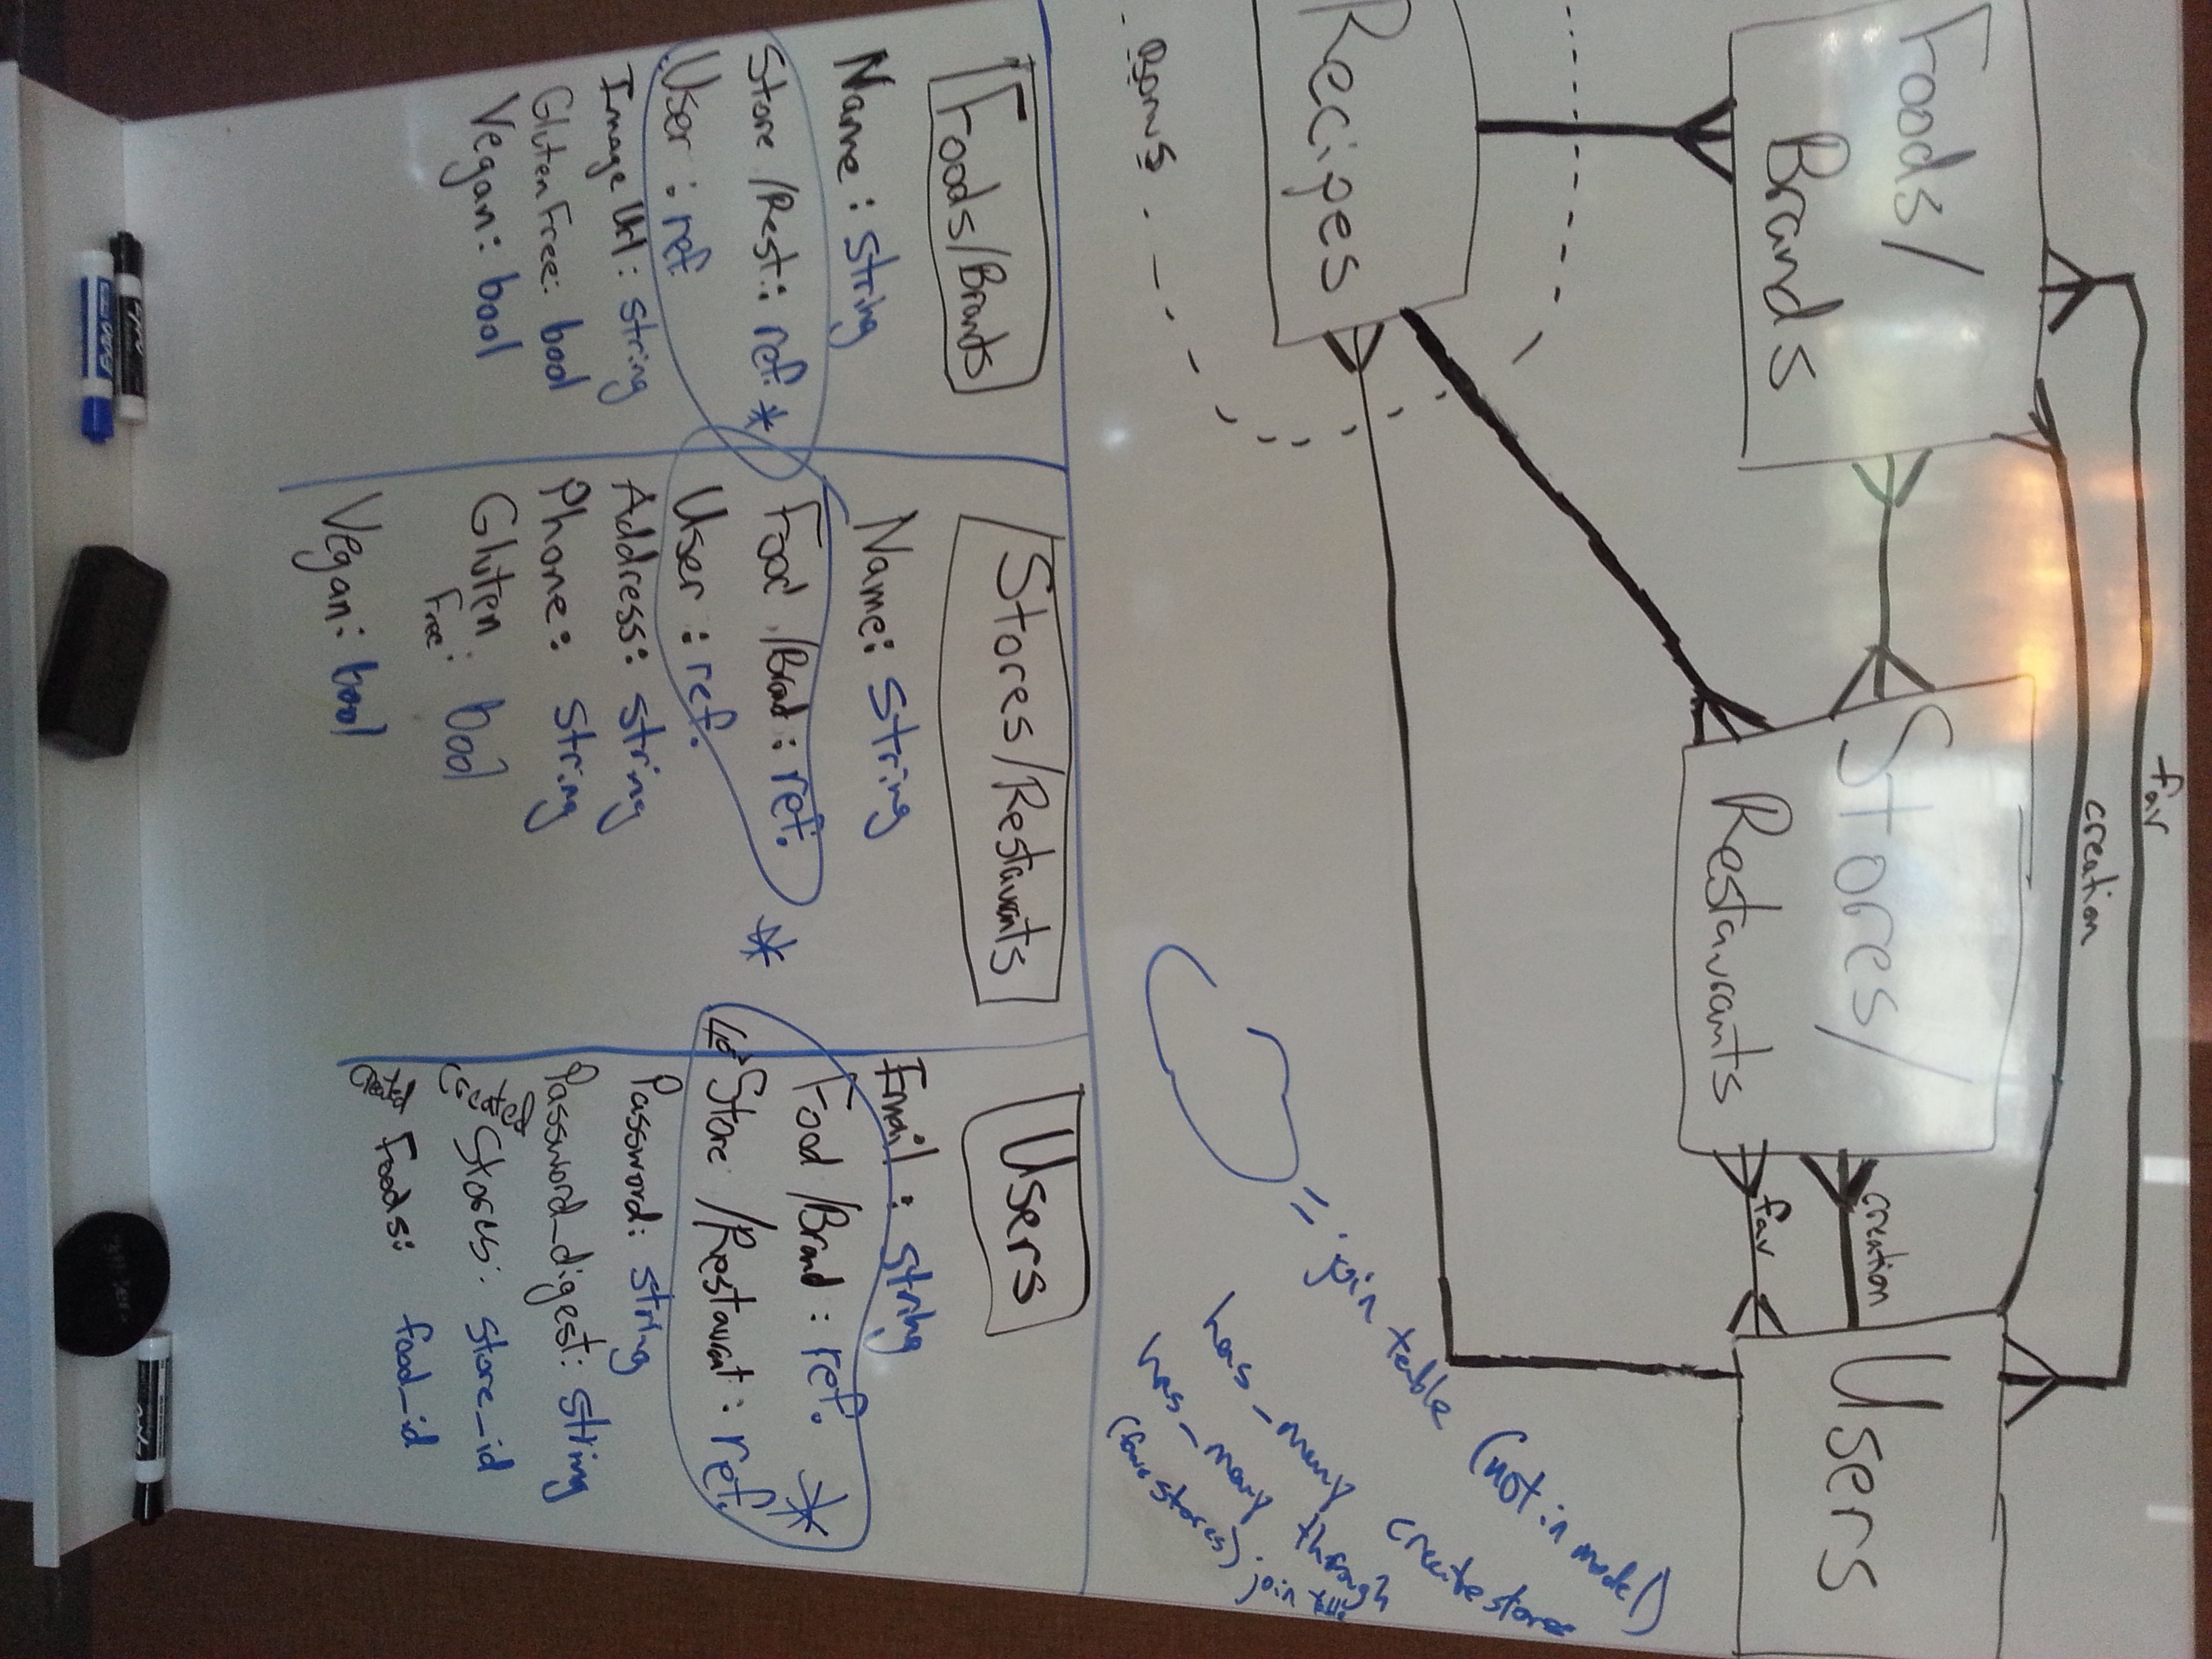 fav
creation
Foods/
Brands
Stores/
Restaurants
creation
fav
Users
Recipes
Bonus
= join table (not in model)
has_many create stores
has_many through
(fave stores)
Foods/Brands
Name: string
Store/Rest.: ref. *
User: ref.
Image Url: string
Gluten Free: bool
Vegan: bool
Stores/Restaurants
Name: string
Food/Brand: ref. *
User: ref.
Address: string
Phone: string
Gluten
Free: bool
Vegan: bool
Users
Email: string
Food/Brand: ref. *
Store/Restaurant: ref.
Password: string
Password_digest: string
Stores: store_id
Created Foods: food_id